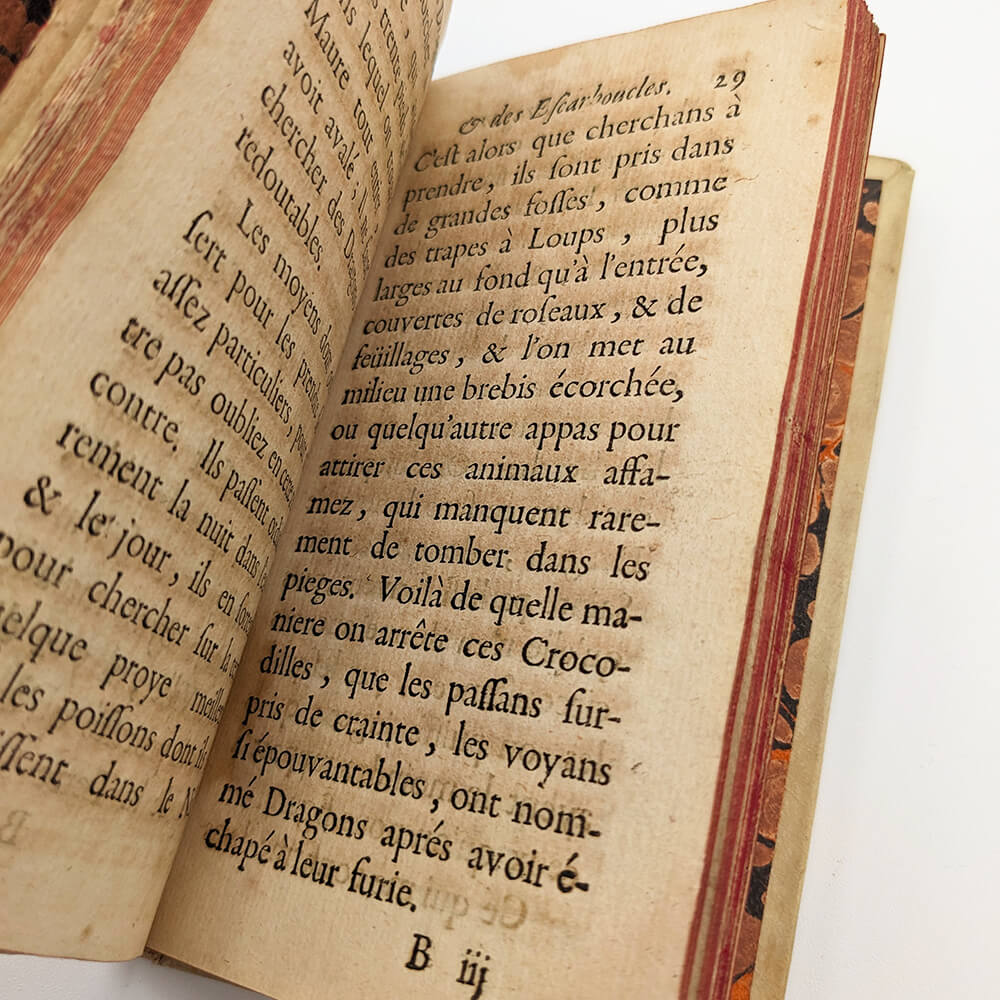 Maure tout entier,
avoit avalé;
chercher des
redoutables.
Les moyens dont
ſert pour les
aſſez particuliers,
tre pas oubliez en cette
contre. Ils paſſent
rement la nuit dans
& le jour, ils en
pour chercher ſur la
elque proye
les poiſſons dont ils
iſſent dans le
& des Eſcarboucles. 29
C'eſt alors que cherchans à
prendre, ils ſont pris dans
de grandes foſſes, comme
des trapes à Loups, plus
larges au fond qu'à l'entrée,
couvertes de roſeaux, & de
feüillages, & l'on met au
milieu une brebis écorchée,
ou quelqu'autre appas pour
attirer ces animaux affa-
mez, qui manquent rare-
ment de tomber dans les
pieges. Voilà de quelle ma-
niere on arrête ces Croco-
dilles, que les paſſans ſur-
pris de crainte, les voyans
ſi épouvantables, ont nom-
mé Dragons aprés avoir é-
chapé à leur furie.
B iij